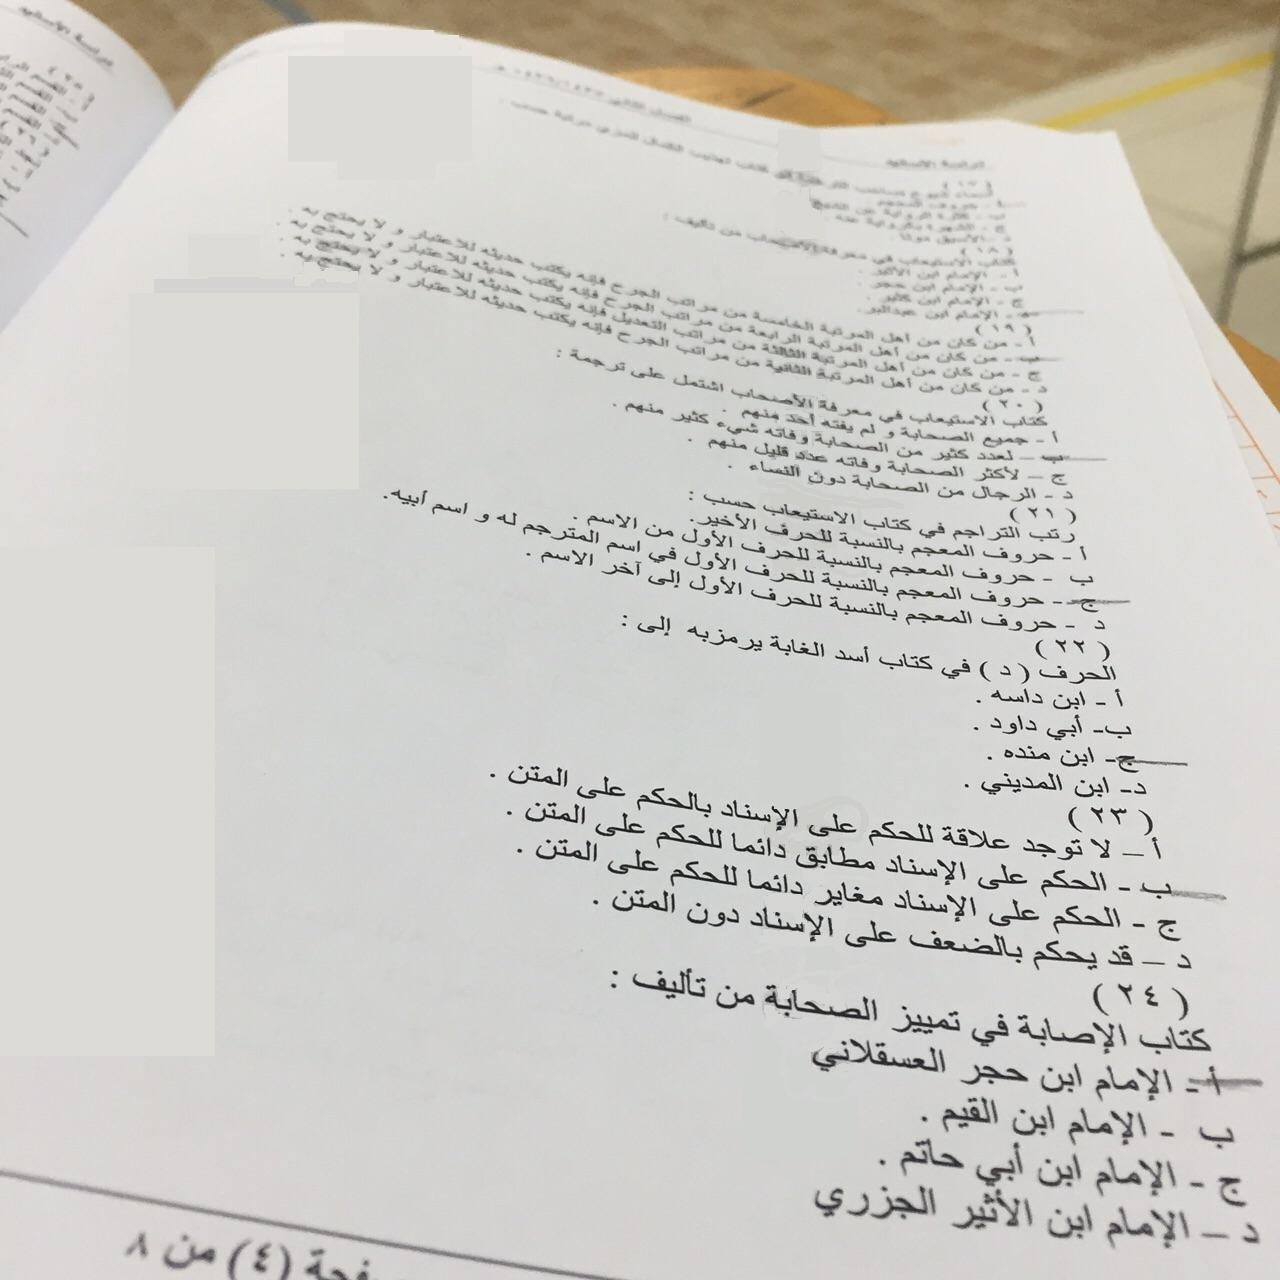 دراسة الأسانيد
الفصل الثاني ١٤٣٦/١٤٣٥ هـ
دراسة الأسانيد
( ١٧ )
أسماء شيوخ صاحب الترجمة في كتاب تهذيب الكمال للمزي مرتبة حسب :
أ - حروف المعجم .
ب - كثرة الرواية عن الشيخ
ج - الشهرة بالرواية عنه .
د - الأسبق موتا .
( ١٨ )
كتاب الاستيعاب في معرفة الأصحاب من تأليف :
أ - الإمام ابن الأثير .
ب - الإمام ابن حجر .
ج - الإمام ابن كثير .
د - الإمام ابن عبدالبر .
( ١٩ )
أ - من كان من أهل المرتبة الخامسة من مراتب الجرح فإنه يكتب حديثه للاعتبار و لا يحتج به .
ب - من كان من أهل المرتبة الرابعة من مراتب الجرح فإنه يكتب حديثه للاعتبار و لا يحتج به .
ج - من كان من أهل المرتبة الثالثة من مراتب التعديل فإنه يكتب حديثه للاعتبار و لا يحتج به .
د - من كان من أهل المرتبة الثانية من مراتب الجرح فإنه يكتب حديثه للاعتبار و لا يحتج به .
( ٢٠ )
كتاب الاستيعاب في معرفة الأصحاب اشتمل على ترجمة :
أ - جميع الصحابة و لم يفته أحد منهم .
ب – لعدد كثير من الصحابة وفاته شيء كثير منهم .
ج – لأكثر الصحابة وفاته عدد قليل منهم .
د - الرجال من الصحابة دون النساء .
( ٢١ )
رتب التراجم في كتاب الاستيعاب حسب :
أ - حروف المعجم بالنسبة للحرف الأخير.
ب - حروف المعجم بالنسبة للحرف الأول من الاسم .
ج - حروف المعجم بالنسبة للحرف الأول في اسم المترجم له و اسم أبيه.
د - حروف المعجم بالنسبة للحرف الأول إلى آخر الاسم .
( ٢٢ )
الحرف ( د ) في كتاب أسد الغابة يرمزبه إلى :
أ - ابن داسه .
ب- أبي داود .
ج- ابن منده .
د- ابن المديني .
( ٢٣ )
أ – لا توجد علاقة للحكم على الإسناد بالحكم على المتن .
ب - الحكم على الإسناد مطابق دائما للحكم على المتن .
ج - الحكم على الإسناد مغاير دائما للحكم على المتن .
د – قد يحكم بالضعف على الإسناد دون المتن .
( ٢٤ )
كتاب الإصابة في تمييز الصحابة من تأليف :
أ- الإمام ابن حجر العسقلاني
ب - الإمام ابن القيم .
ج - الإمام ابن أبي حاتم .
د – الإمام ابن الأثير الجزري
(٤) من ٨